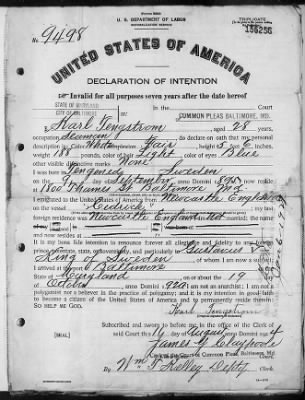 U. S. DEPARTMENT OF LABOR
NATURALIZATION SERVICE
TRIPLICATE
No. 9498
UNITED STATES OF AMERICA
DECLARATION OF INTENTION
Invalid for all purposes seven years after the date hereof
STATE OF MARYLAND
CITY OF BALTIMORE
Court
COMMON PLEAS BALTIMORE, MD.
I, Karl Tengstrom, aged 28 years,
occupation Seaman, do declare on oath that my personal
description is: Color White, complexion Fair, height 5 feet 6 inches,
weight 138 pounds, color of hair Light, color of eyes Blue
other visible distinctive marks None
I was born in Sweden
on the day of September, anno Domini 1895; I now reside
at Thames St Baltimore Md
I emigrated to the United States of America from Newcastle England
on the vessel
foreign residence was Newcastle England
It is my bona fide intention to renounce forever all allegiance and fidelity to any foreign
prince, potentate, state, or sovereignty, and particularly to Gustavus V
King of Sweden, of whom I am now a subject;
I arrived at the port of Baltimore, in the
State of Maryland, on or about the 19 day
of October, anno Domini 1920; I am not an anarchist; I am not a
polygamist nor a believer in the practice of polygamy; and it is my intention in good faith
to become a citizen of the United States of America and to permanently reside therein:
SO HELP ME GOD.
Karl Tengstrom
Subscribed and sworn to before me in the office of the Clerk of
said Court this day of August, anno Domini
James Claypoole
Clerk of the Court of Common Pleas, Baltimore, Md.
By Wm F Kelley Depty Clerk.